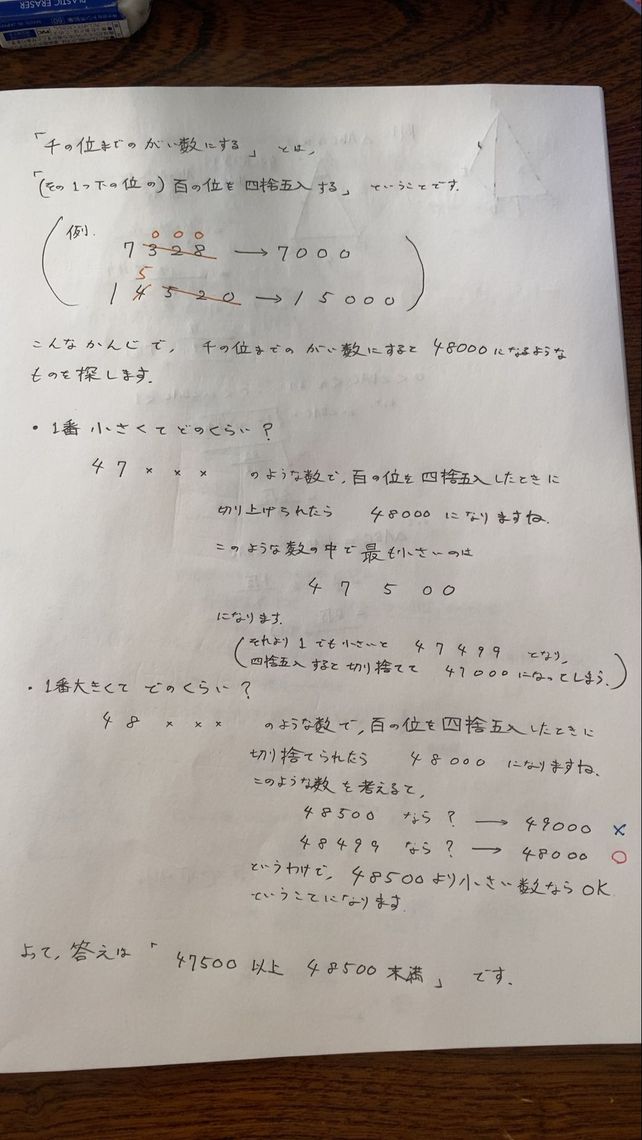 PLASTIC ERASER
「千の位までの がい数にする」 とは、
「(その1つ下の位の) 百の位を 四捨五入する」 ということです。
例.
0 0 0
7 3 2 8 → 7 0 0 0
5
1 4 5 2 0 → 1 5 0 0 0
こんなかんじで、 千の位までの がい数にすると 48000 になるような
ものを探します。
・1番 小さくて どのくらい？
4 7 × × × のような数で、百の位を 四捨五入したときに
切り上げられたら 48000 になりますね。
このような数の中で 最も小さいのは
4 7 5 0 0
になります。
(それより 1 でも小さいと 4 7 4 9 9 となり、
四捨五入すると切り捨てて 47000 になってしまう。)
・1番大きくて どのくらい？
4 8 × × × のような数で、百の位を四捨五入したときに
切り捨てられたら 48000 になりますね。
このような数を考えると、
48500 なら？ → 49000 ×
48499 なら？ → 48000 ○
というわけで、48500より小さい数ならOK
ということになります。
よって、答えは 「 47500 以上 48500 未満 」 です。